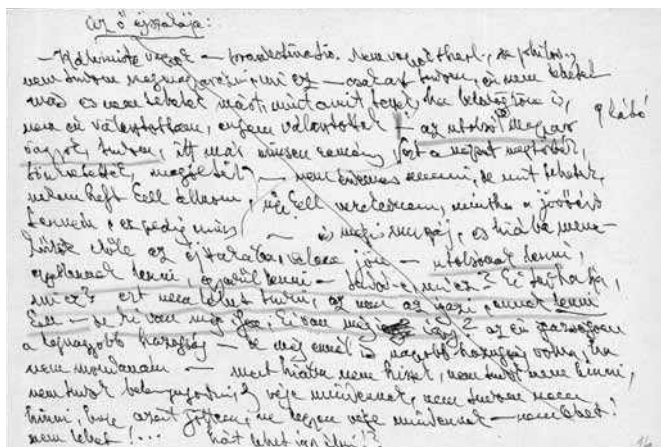 Az ő éjszakája:
— Kálvinista vagyok — praedestinatio. Nem vagyok theol., se philos.,
nem tudom megmagyarázni mi ez — csak azt tudom, én nem lehetek
más és nem tehetek mást, mint amit teszek, ha belehalok is,
nem én választottam, engem választottak — az utolsó magyar
vagyok, tudom, itt már nincsen remény, ezt a népet megtörték,
tönkretették, megölték — nem érdemes semmi, de mit tehetek,
nekem kell állnom, úgy kell vezetnem, mintha a jövőért
tenném, ez pedig nincs — és mégis muszáj, és hiába mene-
külök előle az éjszakába, velem jön — utolsónak lenni,
egyetlennek lenni, egyedül lenni — tudod-e, mi ez? Ki tudhatja,
mi ez? ezt nem lehet tudni, az nem az igazi, ennek lenni
kell — de ki van még így? az én igazságom
a legnagyobb hazugság — de még ennél is nagyobb hazugság volna, ha
nem mondanám — mert hiába nem hiszek, nem tudok nem hinni,
nem tudok belenyugodni, vége mindennek, nem tudom nem
hinni, hogy azért jöttem, ne legyen vége mindennek — nem lehet!
nem lehet! . . . hát lehet így élni!?